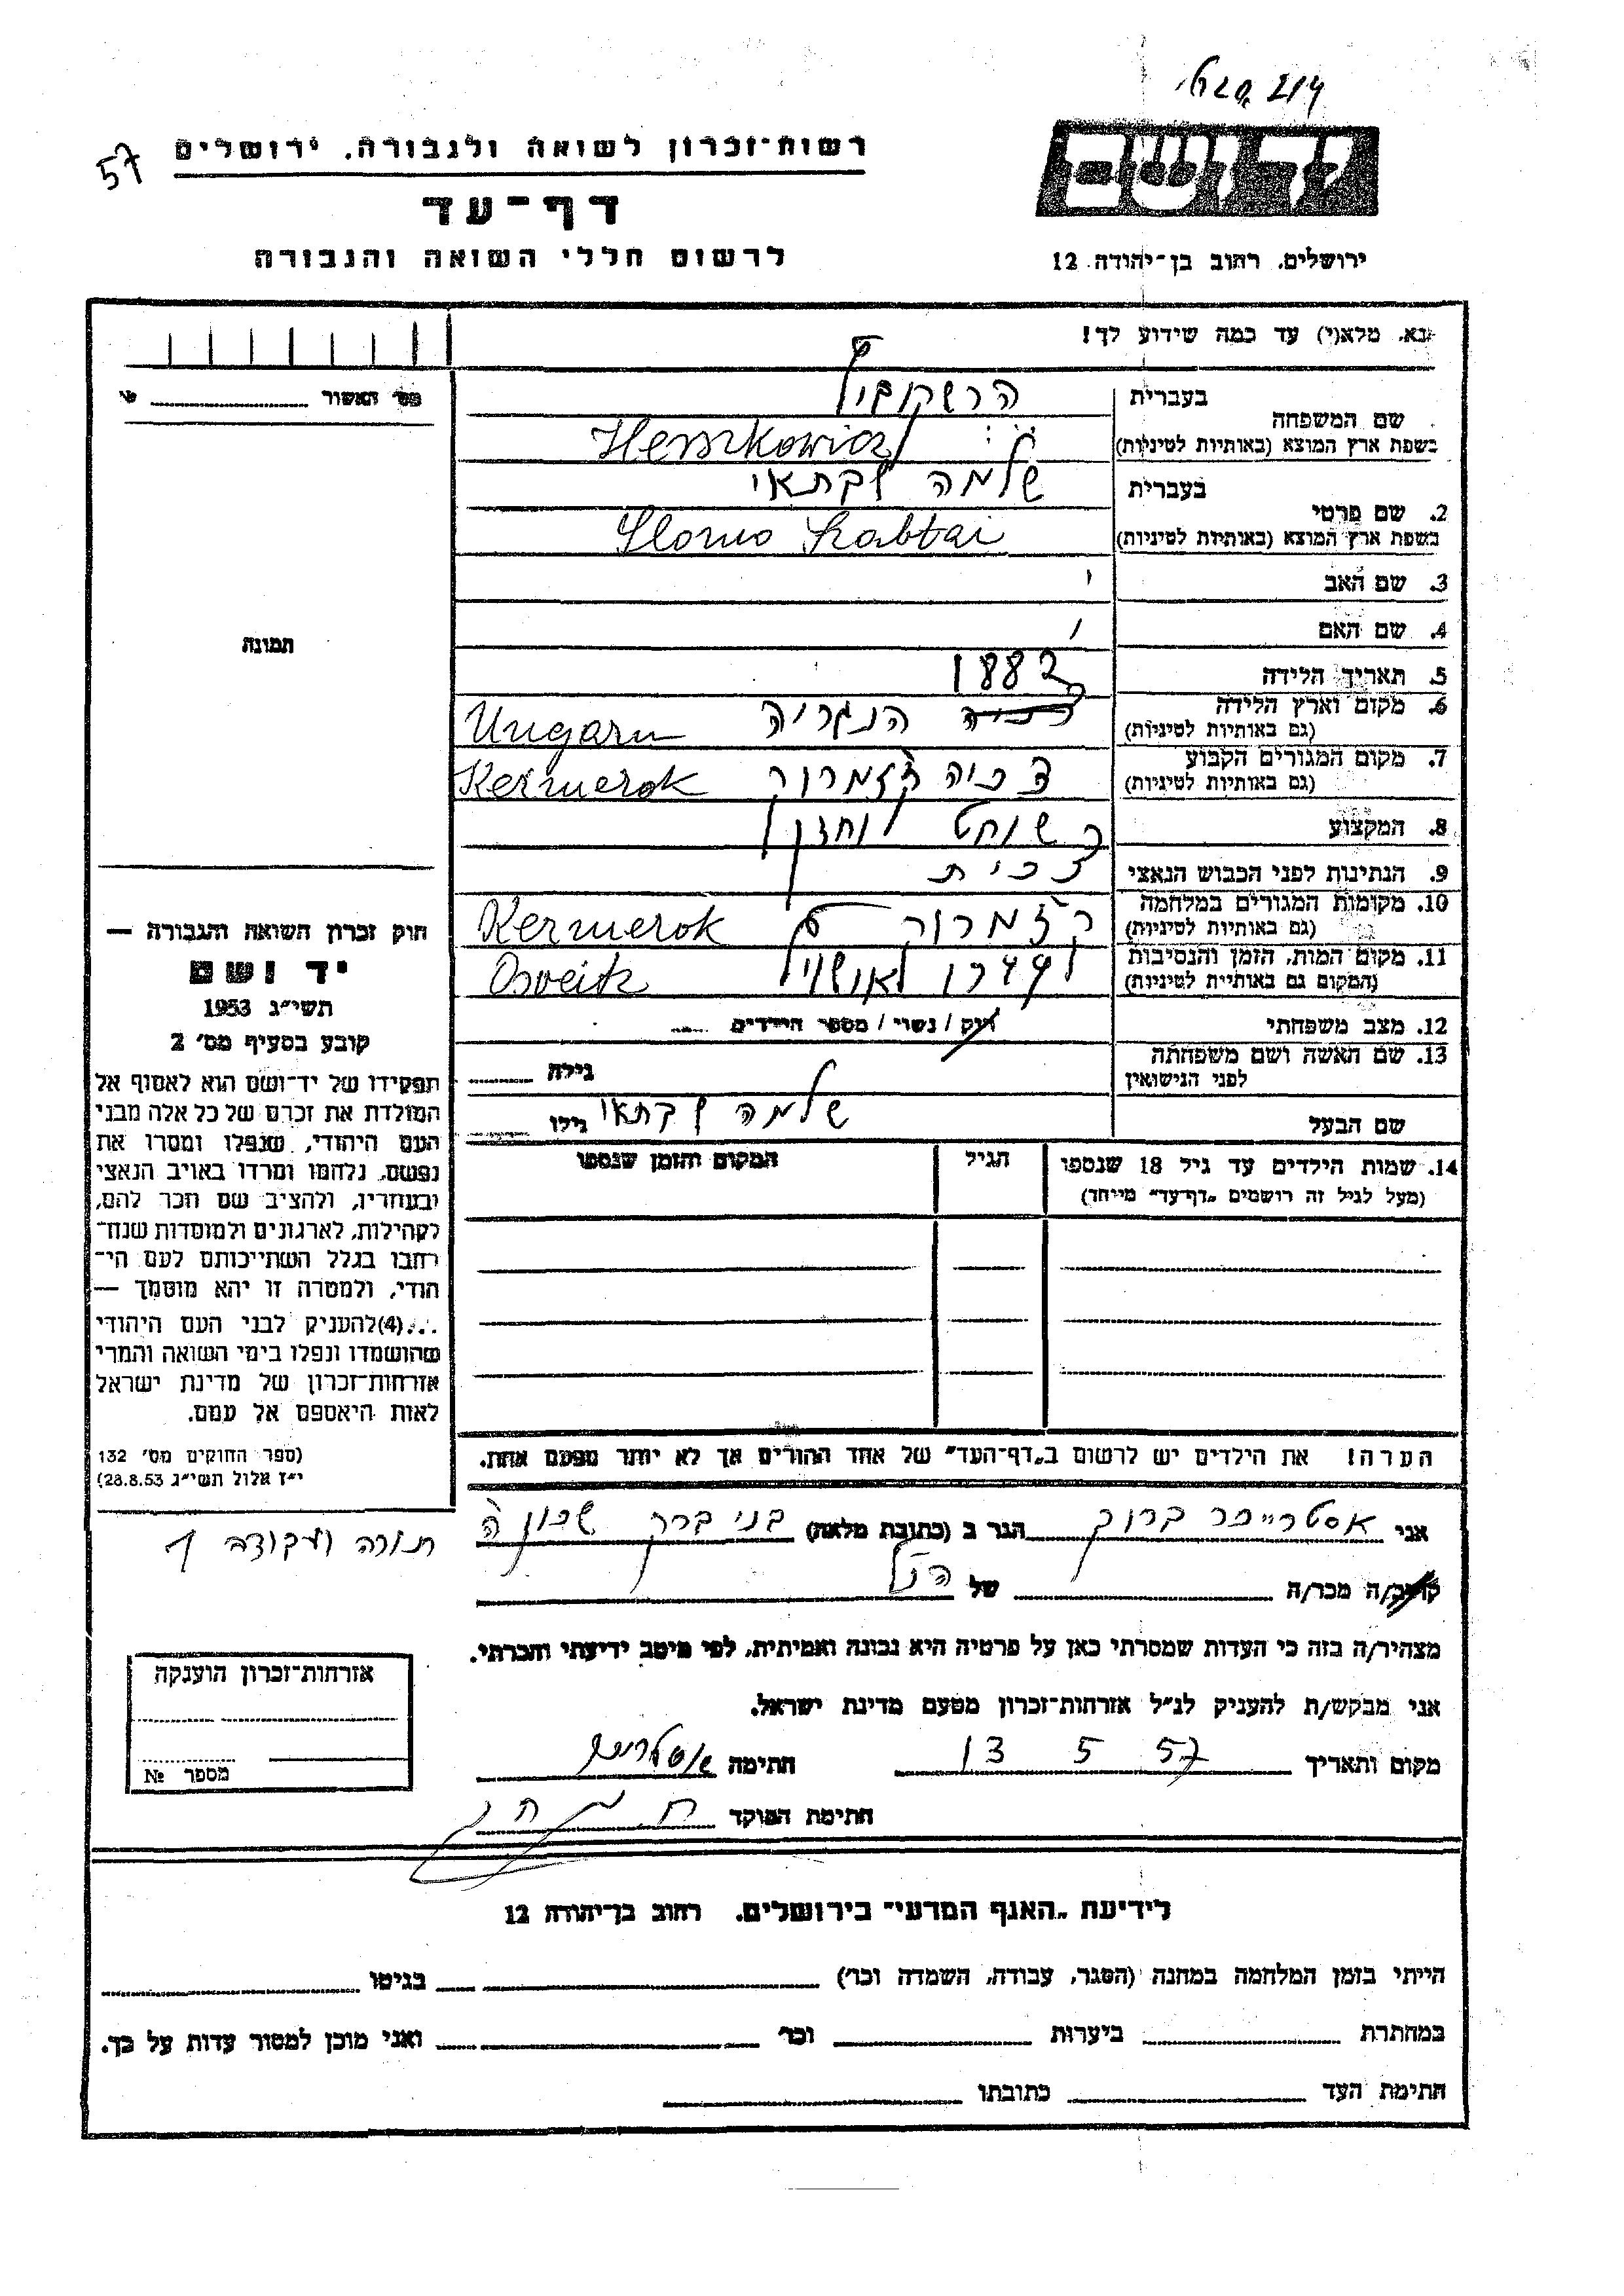 57
רשות-זכרון לשואה ולגבורה, ירושלים
דף-עד
לרשום חללי השואה והגבורה
ירושלים, רחוב בן-יהודה 12
נא, מלא(י) עד כמה שידוע לך!
בעברית
שם המשפחה הרשקוביץ
בשפת ארץ המוצא (באותיות לטיניות) Herszkowicz
בעברית שלמה שבתאי
2. שם פרטי
בשפת ארץ המוצא (באותיות לטיניות) Slomo Szabtai
3. שם האב
4. שם האם
5. תאריך הלידה 1882
6. מקום וארץ הלידה הנגריה Ungarn
(גם באותיות לטיניות)
7. מקום המגורים הקבוע צ'כיה קזמרוק Kezmerok
(גם באותיות לטיניות)
8. המקצוע שוחט וחזן
9. הנתינות לפני הכבוש הנאצי צ'כית
10. מקומות המגורים במלחמה קזמרוק Kezmerok
(גם באותיות לטיניות)
11. מקום המות, הזמן והנסיבות אושויץ Osveitz
(המקום גם באותיות לטיניות)
12. מצב משפחתי רוק / נשוי / מספר הילדים
13. שם האשה ושם משפחתה גילה
לפני הנישואין
שם הבעל שלמה שבתאי גילו
14. שמות הילדים עד גיל 18 שנספו הגיל המקום והזמן שנספו
(מעל לגיל זה רושמים „דף-עד" מיוחד)
הערה! את הילדים יש לרשום ב„דף-העד" של אחד ההורים אך לא יותר מפעם אחת.
מס' האשור
תמונה
חוק זכרון השואה והגבורה —
יד ושם
תשי"ג 1953
קובע בסעיף מס' 2
תפקידו של יד-ושם הוא לאסוף אל
המולדת את זכרם של כל אלה מבני
העם היהודי, שנפלו ומסרו את
נפשם, נלחמו ומרדו באויב הנאצי
ובעוזריו, ולהציב שם וזכר להם,
לקהילות, לארגונים ולמוסדות שנח-
רחבו בגלל השתייכותם לעם הי-
הודי, ולמטרה זו יהא מוסמך —
...(4) להעניק לבני העם היהודי
שהושמדו ונפלו בימי השואה והמרי
אזרחות-זכרון של מדינת ישראל
לאות היאספם אל עמם.
(ספר החוקים מס' 132
י"ז אלול תשי"ג 28.8.53)
אני אסטרייכר ברוך הגר ב (כתובת מלאה) בני ברק שכון ה
תורה ועבודה
קרוב/ה מכר/ה של הנ"ל
מצהיר/ה בזה כי העדות שמסרתי כאן על פרטיה היא נכונה ואמיתית, לפי מיטב ידיעתי והכרתי.
אני מבקש/ת להעניק לנ"ל אזרחות-זכרון מטעם מדינת ישראל.
מקום ותאריך 13 5 57 חתימה
חתימת הפוקד
אזרחות-זכרון הוענקה
מספר №
לידיעת „האגף המדעי" בירושלים, רחוב בן-יהודה 12
הייתי בזמן המלחמה במחנה (הסגר, עבודה, השמדה וכו') בגיטו
במחתרת ביערות וכו' ואני מוכן למסור עדות על כך.
חתימת העד כתובתו